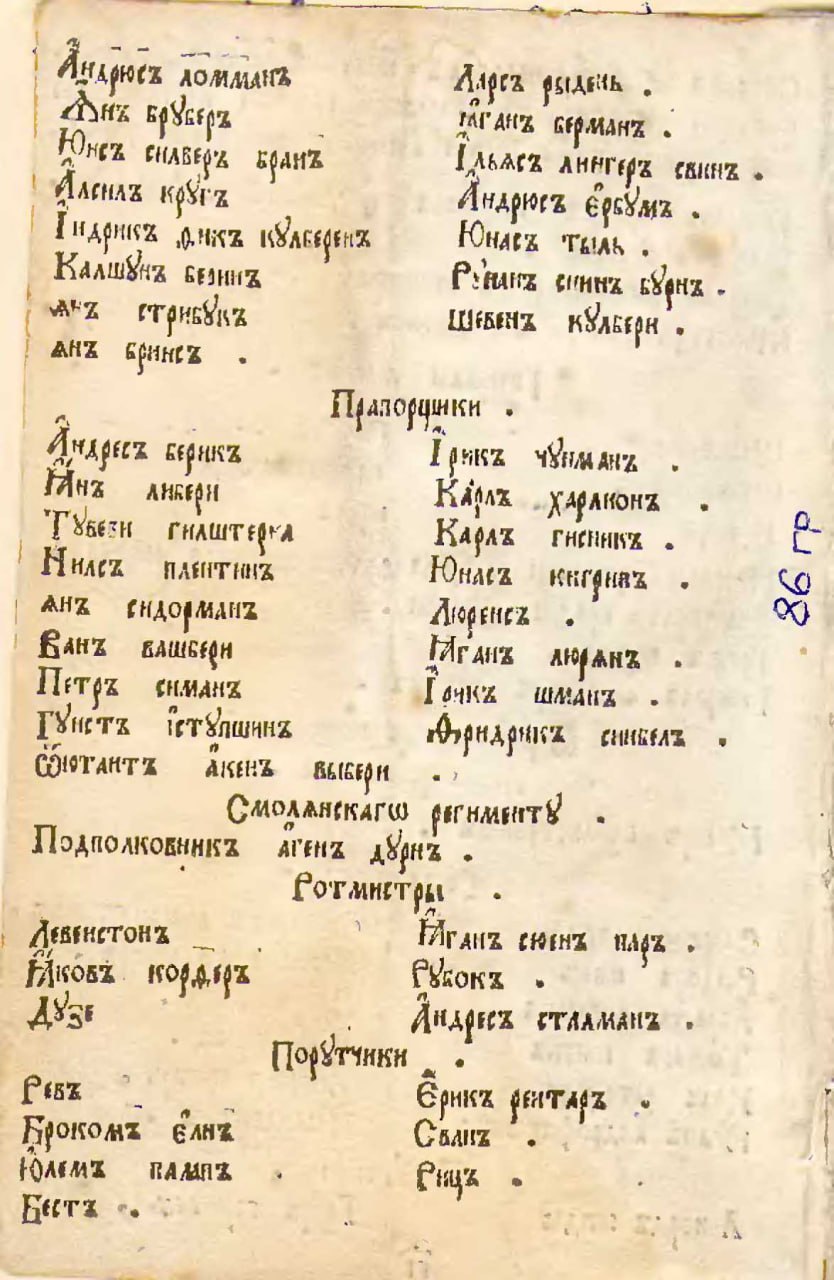 Андрюсъ ломманъ
Ѧнъ брꙋберъ
Юнсъ силверъ бранъ
Алсилъ крꙋгъ
Їндрикъ дикъ кꙋлберенъ
Калшꙋнъ беринъ
ѧнъ стрибꙋкъ
ѧнъ бринсъ .
Ларсъ рыдень .
Ꙗганъ берманъ .
Їльѧсъ лингеръ свинъ .
Андрюсъ єрбꙋмъ .
Юнасъ тыль .
свинъ бꙋрнъ .
Шевенъ кꙋлбери .
Прапорщики .
Андресъ берикъ
Ꙗнъ либери
Тꙋбези гилштерна
Нилсъ плентинъ
ѧнъ сидорманъ
Ванъ вашбери
Петръ симанъ
Гꙋнстъ їстꙋпшинъ
Ѡютантъ акенъ выбери .
Їрикъ чꙋнманъ .
Карлъ харлконъ .
Карлъ гисникъ .
Юнасъ книгринъ .
Люренсъ .
Ꙗганъ люрѧнъ .
Їрикъ шманъ .
Фридрикъ снибелъ .
Смолѧнскагѡ региментꙋ .
Подполковникъ агенъ дꙋрнъ .
Ротмистры .
Левенстонъ
Ꙗковъ кордеръ
Дꙋзе
Ꙗганъ сюенъ паръ .
Рꙋбокъ .
Андресъ сталманъ .
Порꙋтчики .
Ревъ
Брокомъ єлнъ
Юлемъ палмъ .
Бестъ .
Єрикъ реитаръ .
Сванъ .
Рицъ .
86 гр